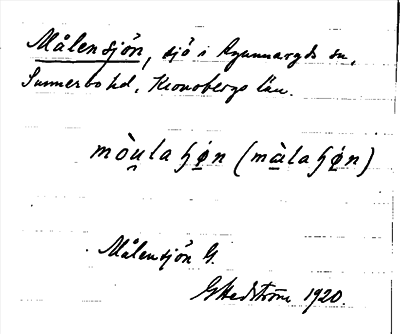 Målensjön, sjö i Ryssnargds sn,
Sunnerbo hd, Kronobergs län.
mòu̯la ɧø̲n (mà̲la ɧǿ̲n)
Målensjön G.
G Hedström 1920.